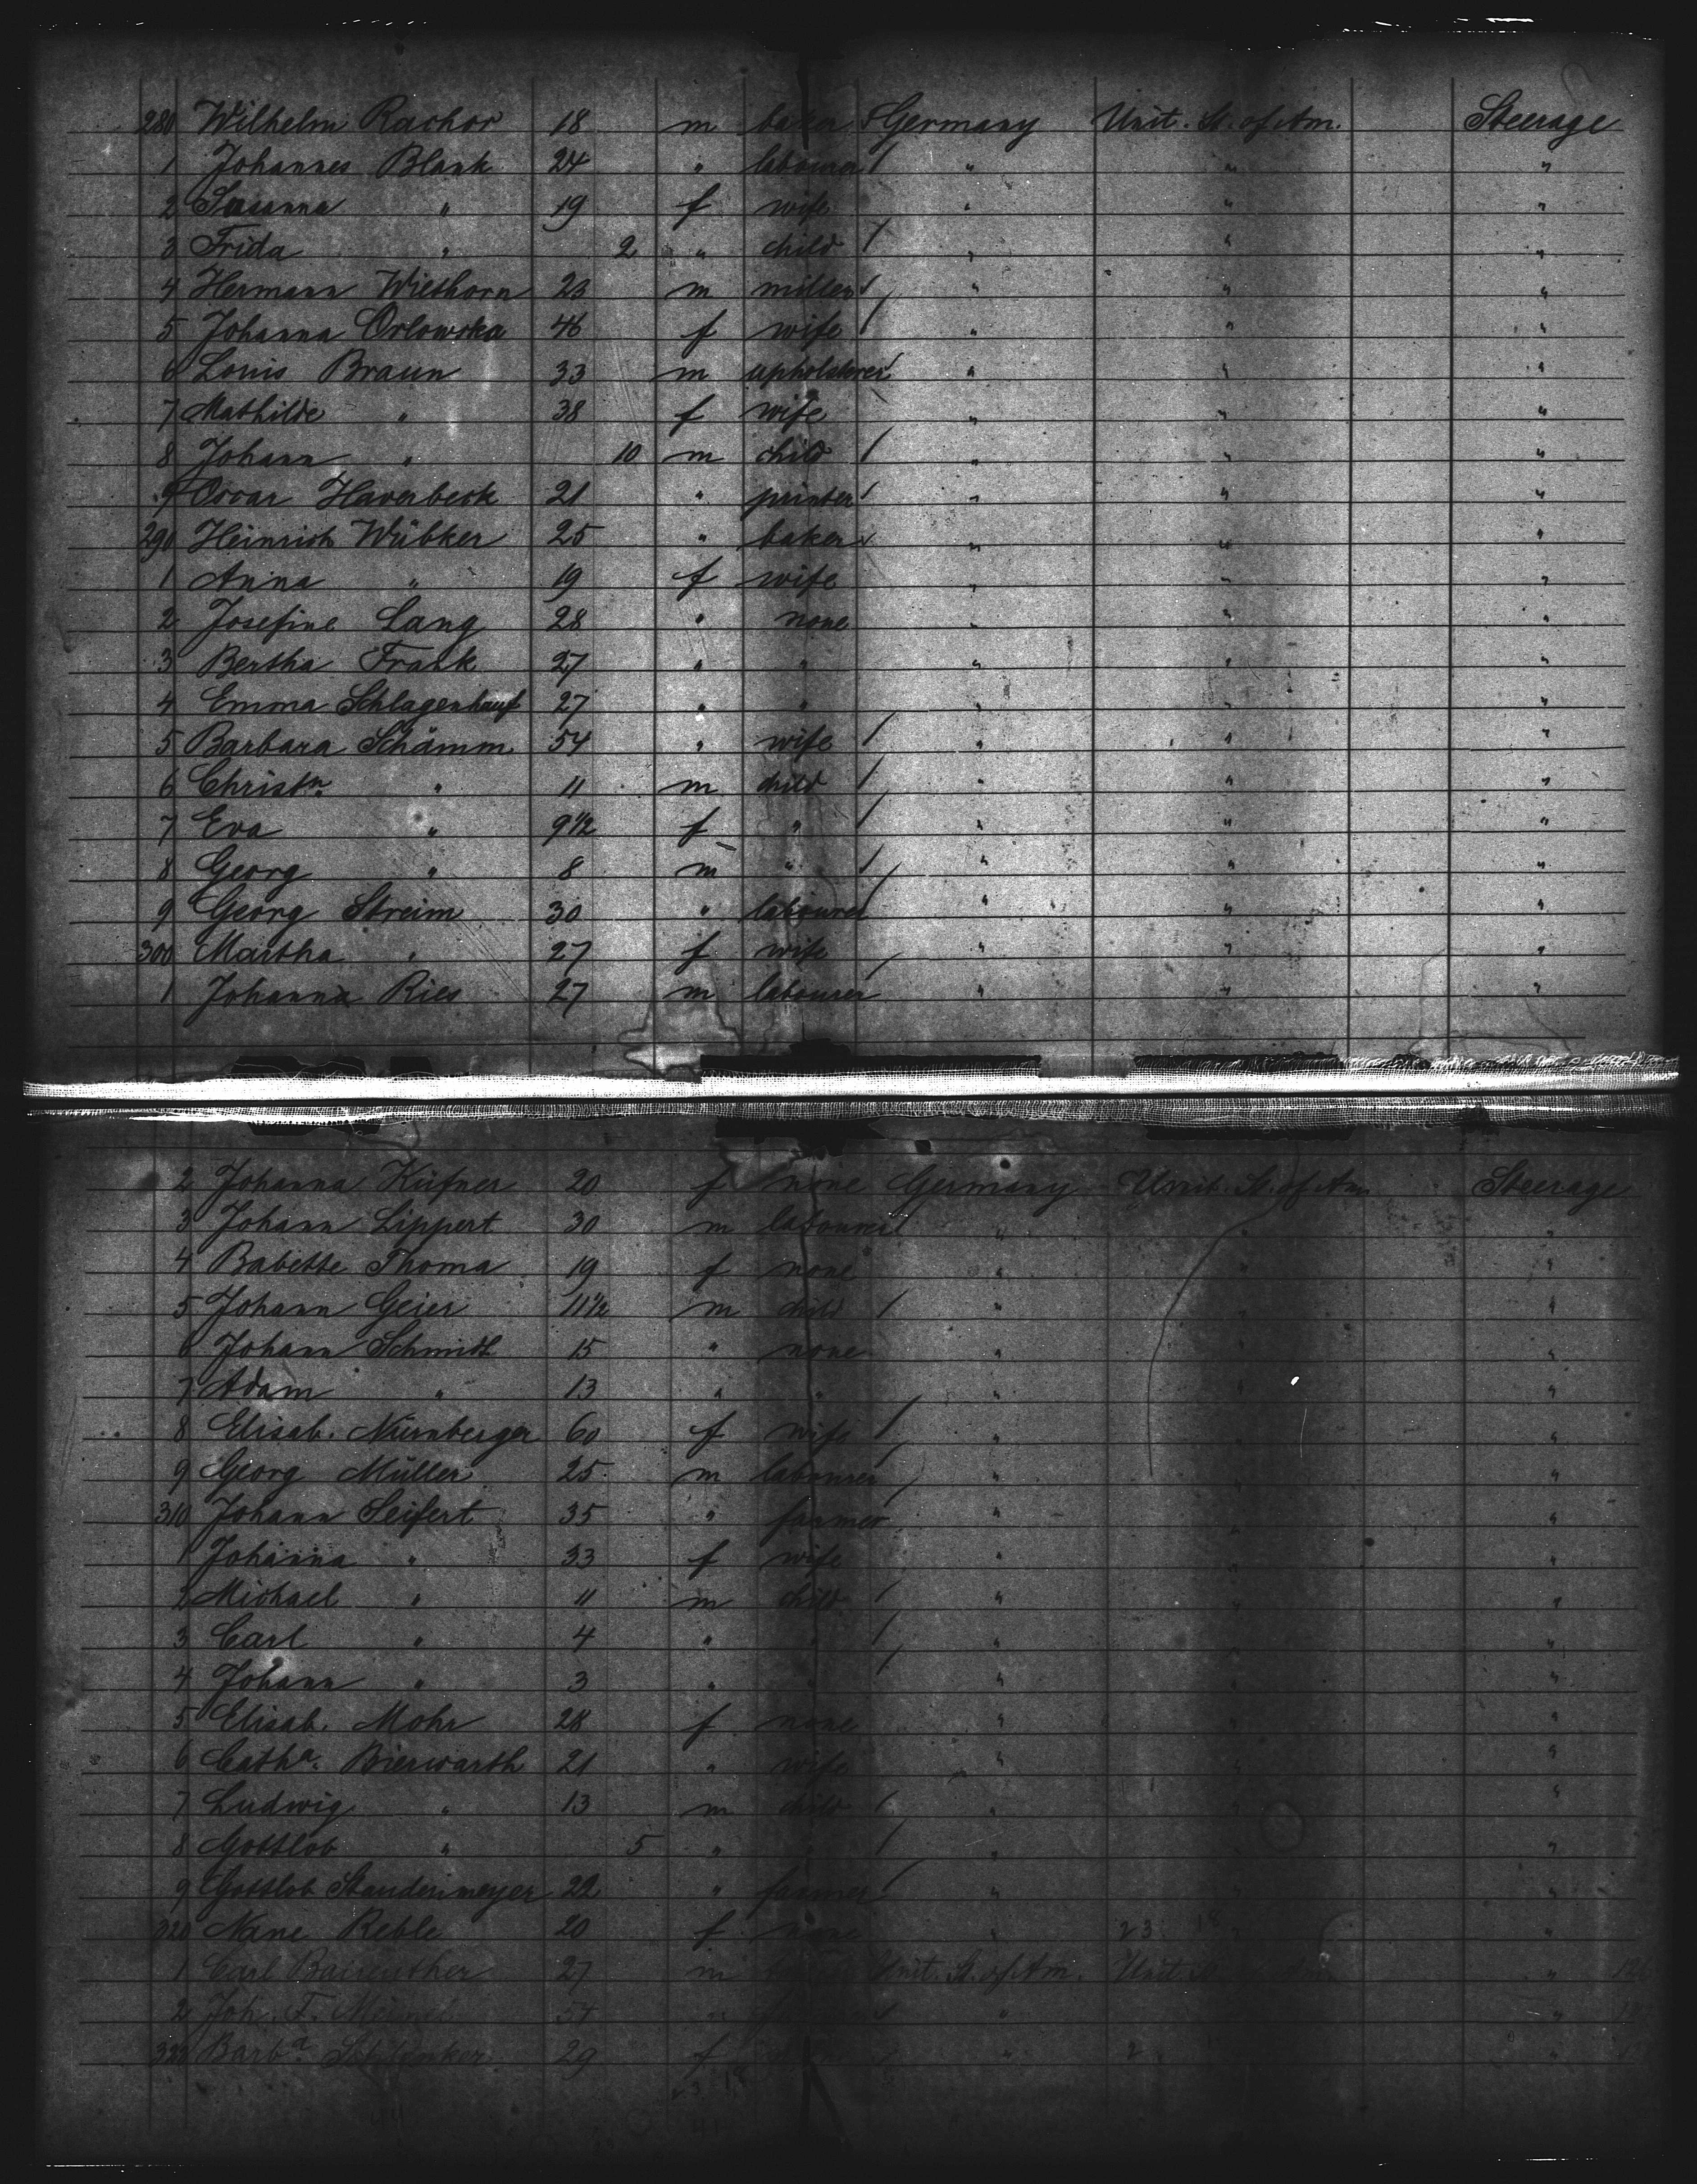 280 Wilhelm Rachor 18 m baker Germany Unit. St. of Am. Steerage
1 Johannes Blank 24 " labourer " " "
2 Susanna " 19 f wife " " "
3 Frida " 2 " child " " "
4 Hermann Wiethorn 23 m miller " " "
5 Johanna Orlowska 46 f wife " " "
6 Louis Braun 33 m upholsterer " " "
7 Mathilde " 38 f wife " " "
8 Johann " 10 m child " " "
9 Oscar Haverbeck 21 " printer " " "
290 Heinrich Wübker 25 " baker " " "
1 Anna " 19 f wife " " "
2 Josefine Lang 28 " none " " "
3 Bertha Frank 27 " " " " "
4 Emma Schlagenhauf 27 " " " " "
5 Barbara Schamm 54 " wife " " "
6 Christn. " 11 m child " " "
7 Eva " 9½ f " " " "
8 Georg " 8 m " " " "
9 Georg Streim 30 " labourer " " "
300 Martha " 27 f wife " " "
1 Johann Ries 27 m labourer " " "
2 Johanna Küfner 20 f none Germany Unit. St. of Am. Steerage
3 Johann Lippert 30 m labourer " " "
4 Babette Thoma 19 f none " " "
5 Johann Geier 11½ m child " " "
6 Johann Schmidt 15 " none " " "
7 Adam " 13 " " " " "
8 Elisab. Nürnberger 60 f wife " " "
9 Georg Müller 25 m labourer " " "
310 Johann Seifert 35 " farmer " " "
1 Johanna " 33 f wife " " "
2 Michael " 11 m child " " "
3 Carl " 4 " " " " "
4 Johann " 3 " " " " "
5 Elisab. Mohr 28 f none " " "
6 Catha. Bierwarth 21 " wife " " "
7 Ludwig " 13 m child " " "
8 Gottlob " 5 " " " " "
9 Gottlob Staudenmeyer 22 " farmer " " "
320 Nane Reble 20 f none " " "
1 Carl Baireuther 27 m Unit. St. of Am. Unit. St. of Am. "
2 Joh. F. 54 " " "
323 Barba. 29 f " "